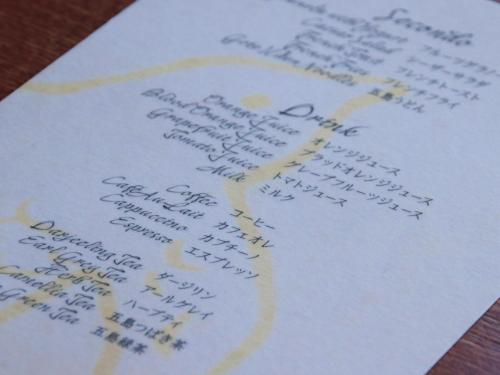 Secondo
フルーツサラダ
Caesar Salad シーザーサラダ
French Toast フレンチトースト
French Fries フレンチフライ
Goto Udon Noodles 五島うどん
Drink
Orange Juice オレンジジュース
Blood Orange Juice ブラッドオレンジジュース
Grapefruit Juice グレープフルーツジュース
Tomato Juice トマトジュース
Milk ミルク
Coffee コーヒー
Café Au Lait カフェオレ
Cappuccino カプチーノ
Espresso エスプレッソ
Darjeeling Tea ダージリン
Earl Grey Tea アールグレイ
Herb Tea ハーブティ
Camellia Tea 五島つばき茶
Green Tea 五島緑茶